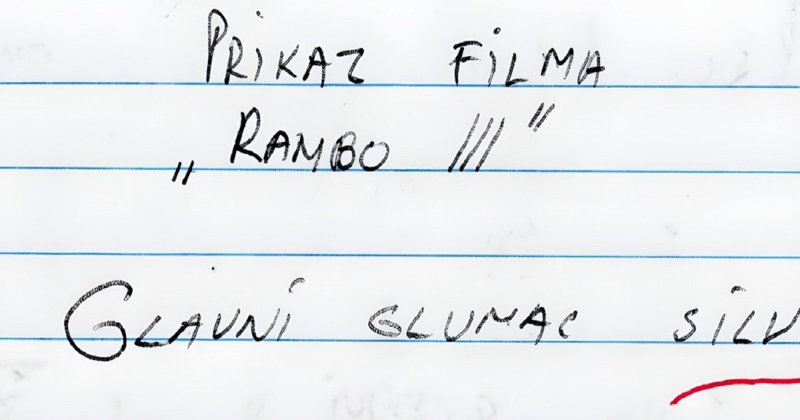 PRiKAZ FiLMA
„RAMBO III"
GLAVNi GLUMAC SiLV